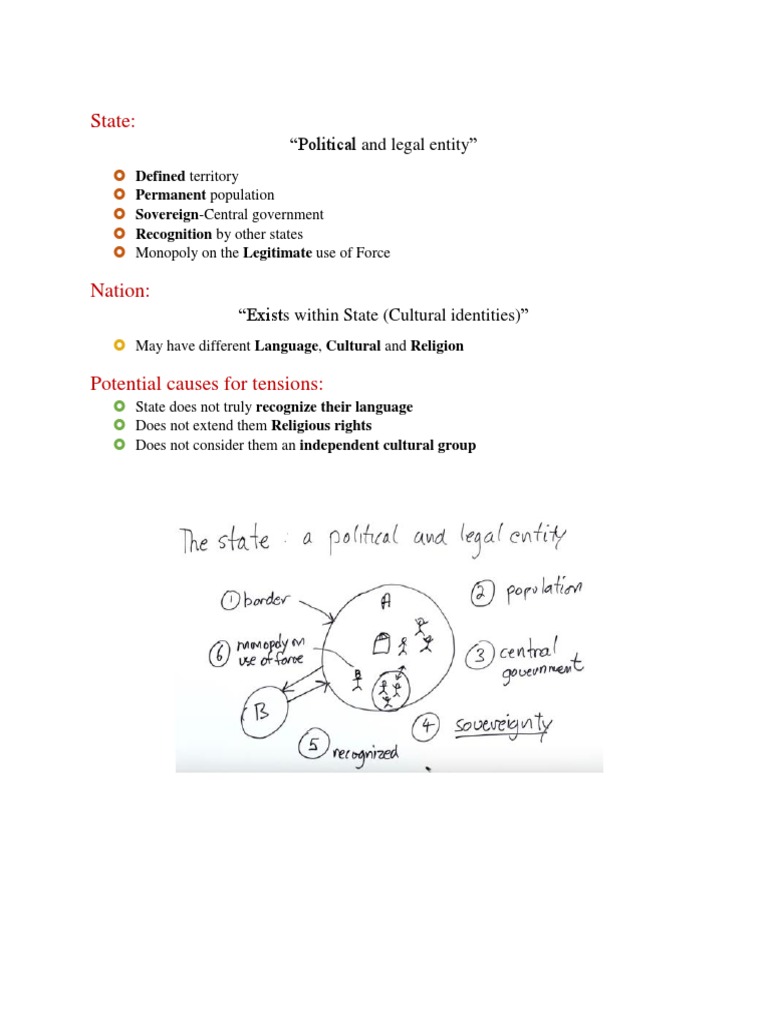 State:
“Political and legal entity”
Defined territory
Permanent population
Sovereign-Central government
Recognition by other states
Monopoly on the Legitimate use of Force
Nation:
“Exists within State (Cultural identities)”
May have different Language, Cultural and Religion
Potential causes for tensions:
State does not truly recognize their language
Does not extend them Religious rights
Does not consider them an independent cultural group
The state : a political and legal entity
1 border
A
2 population
6 monopoly on
use of force
3 central
government
B
4 sovereignty
5 recognized